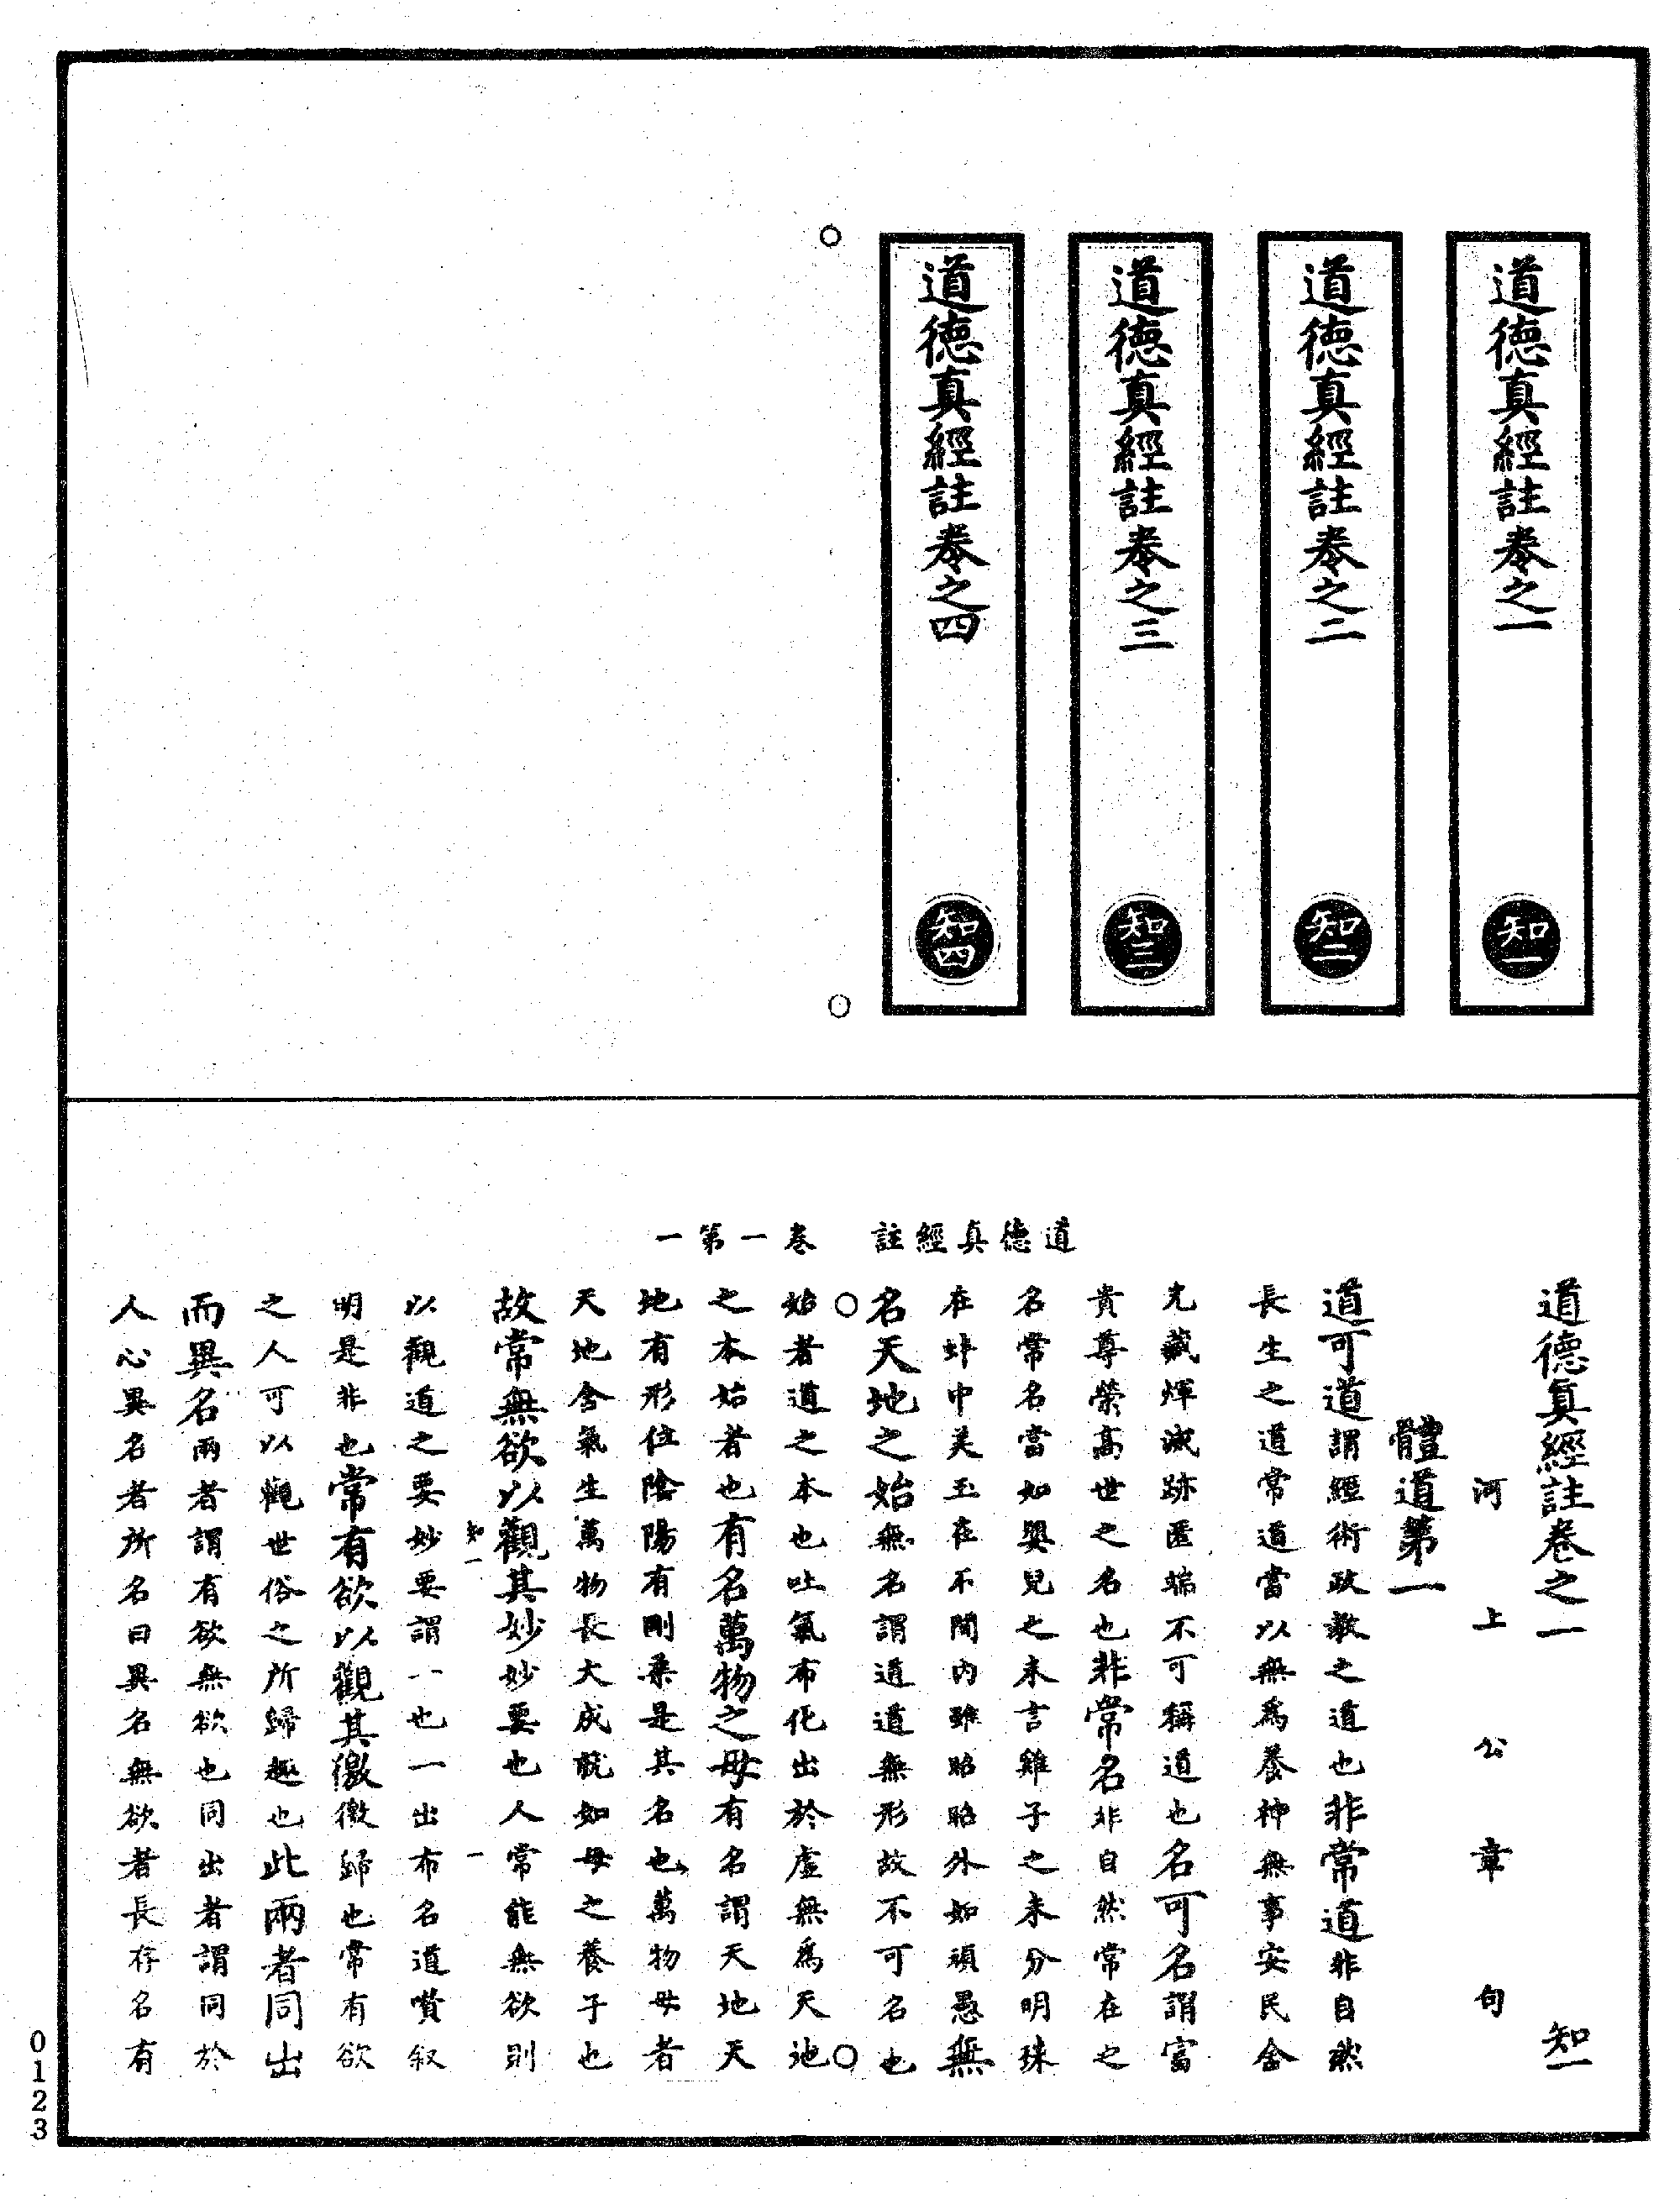 道德真經註卷之一
知一
道德真經註卷之二
知二
道德真經註卷之三
知三
道德真經註卷之四
知四
道德真經註　卷一第一
道德真經註卷之一　知一
河上公章句
體道第一
道可道謂經術政教之道也非常道非自然
長生之道常道當以無為養神無事安民含
光藏煇滅跡匿端不可稱道也名可名謂富
貴尊榮高世之名也非常名非自然常在之
名常名當如嬰兒之未言雞子之未分明珠
在蚌中美玉在石間內雖昭昭外如頑愚無
名天地之始無名謂道道無形故不可名也
始者道之本也吐氣布化出於虛無為天地
之本始者也有名萬物之母有名謂天地天
地有形位陰陽有剛柔是其名也萬物母者
天地含氣生萬物長大成就如母之養子也
故常無欲以觀其妙妙要也人常能無欲則
知一　一
以觀道之要妙要謂一也一出布名道贊叙
明是非也常有欲以觀其徼徼歸也常有欲
之人可以觀世俗之所歸趣也此兩者同出
而異名兩者謂有欲無欲也同出者謂同於
人心異名者所名曰異名無欲者長存名有
0123